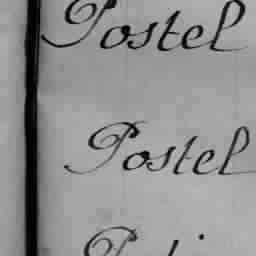 Postel
Postel